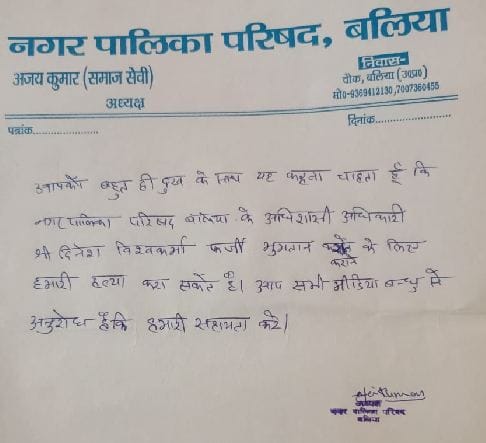 नगर पालिका परिषद, बलिया
अजय कुमार (समाज सेवी)
अध्यक्ष
निवास-
चौक, बलिया (उ०प्र०)
मो०-9369412130,7007360455
पत्रांक....................
दिनांक....................
आपको बहुत ही दुख के साथ यह कहना चाहता हूँ कि
नगर पालिका परिषद बलिया के अधिशासी अधिकारी
श्री दिनेश विश्वकर्मा फर्जी भुगतान कराने के लिए
हमारी हत्या करा सकते है। आप सभी मीडिया बन्धु से
अनुरोध है कि हमारी सहायता करे।
अध्यक्ष
नगर पालिका परिषद
बलिया